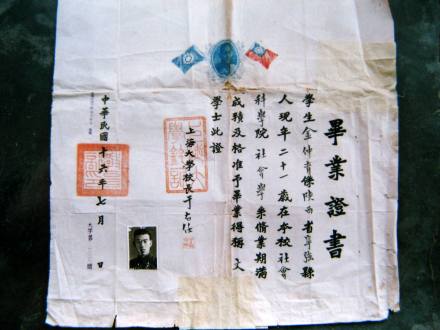 畢業證書
學生金仲 係陝西省寧強縣
人現年二十一歲在本校社會
科學院社會學系脩業期滿
成績及格准予畢業得稱文
學士此證
上海大學校長于右任
中華民國十六年七月 日